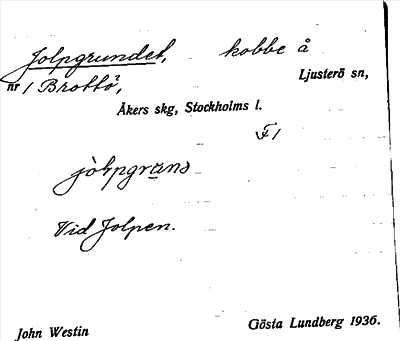 Jolpgrundet, kobbe å
nr 1 Brottö, Ljusterö sn,
Åkers skg, Stockholms l.
F1
Vid Jolpen.
John Westin Gösta Lundberg 1936.